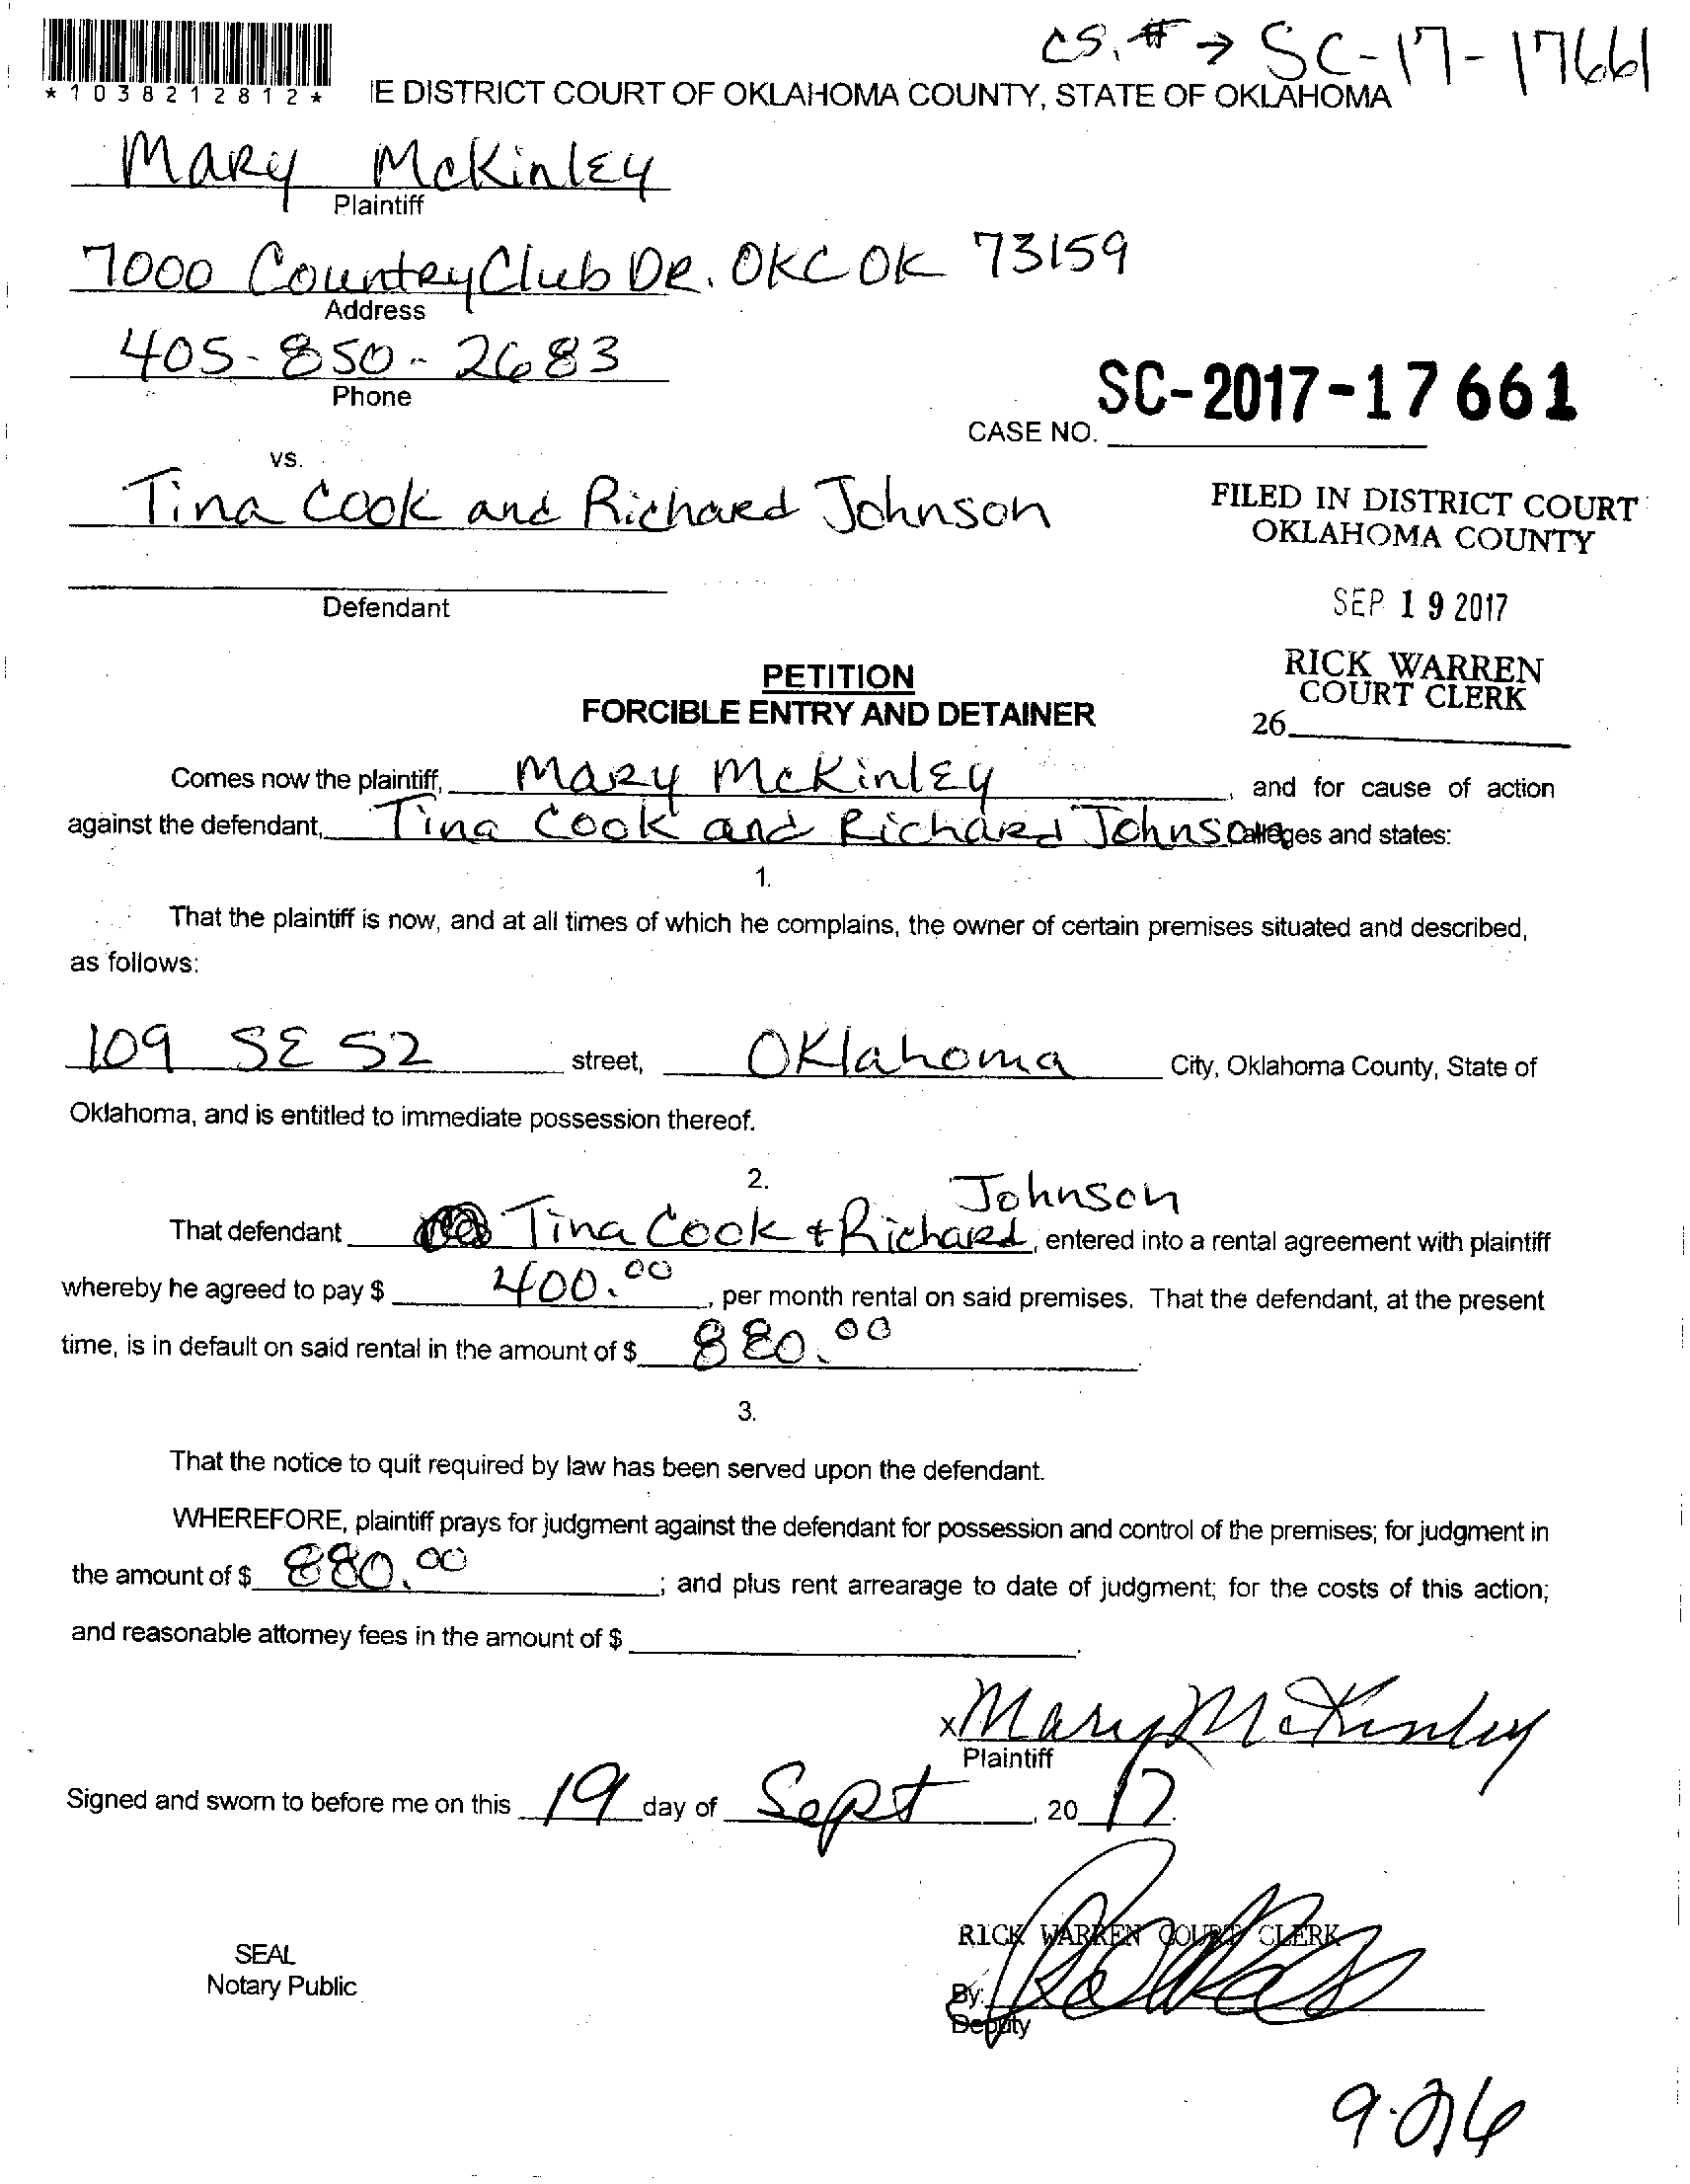 cs. # → SC-17-17661
* 1 0 3 8 2 1 2 8 1 2 *
IE DISTRICT COURT OF OKLAHOMA COUNTY, STATE OF OKLAHOMA
Mary McKinley
Plaintiff
7000 Country Club Dr. OKC OK 73159
Address
405-850-2683
Phone
SC-2017-17661
CASE NO.
vs.
Tina Cook and Richard Johnson
Defendant
FILED IN DISTRICT COURT
OKLAHOMA COUNTY
SEP 19 2017
RICK WARREN
COURT CLERK
26
PETITION
FORCIBLE ENTRY AND DETAINER
Comes now the plaintiff, Mary McKinley, and for cause of action
against the defendant, Tina Cook and Richard Johnson alleges and states:
1.
That the plaintiff is now, and at all times of which he complains, the owner of certain premises situated and described,
as follows:
109 SE 52 street, Oklahoma City, Oklahoma County, State of
Oklahoma, and is entitled to immediate possession thereof.
2.
Johnson
That defendant Tina Cook + Richard, entered into a rental agreement with plaintiff
whereby he agreed to pay $ 400.00, per month rental on said premises. That the defendant, at the present
time, is in default on said rental in the amount of $ 880.00.
3.
That the notice to quit required by law has been served upon the defendant.
WHEREFORE, plaintiff prays for judgment against the defendant for possession and control of the premises; for judgment in
the amount of $ 880.00; and plus rent arrearage to date of judgment; for the costs of this action;
and reasonable attorney fees in the amount of $ .
x Mary McKinley
Plaintiff
Signed and sworn to before me on this 19 day of Sept, 20 17.
RICK WARREN COURT CLERK
SEAL
Notary Public
By:
Deputy